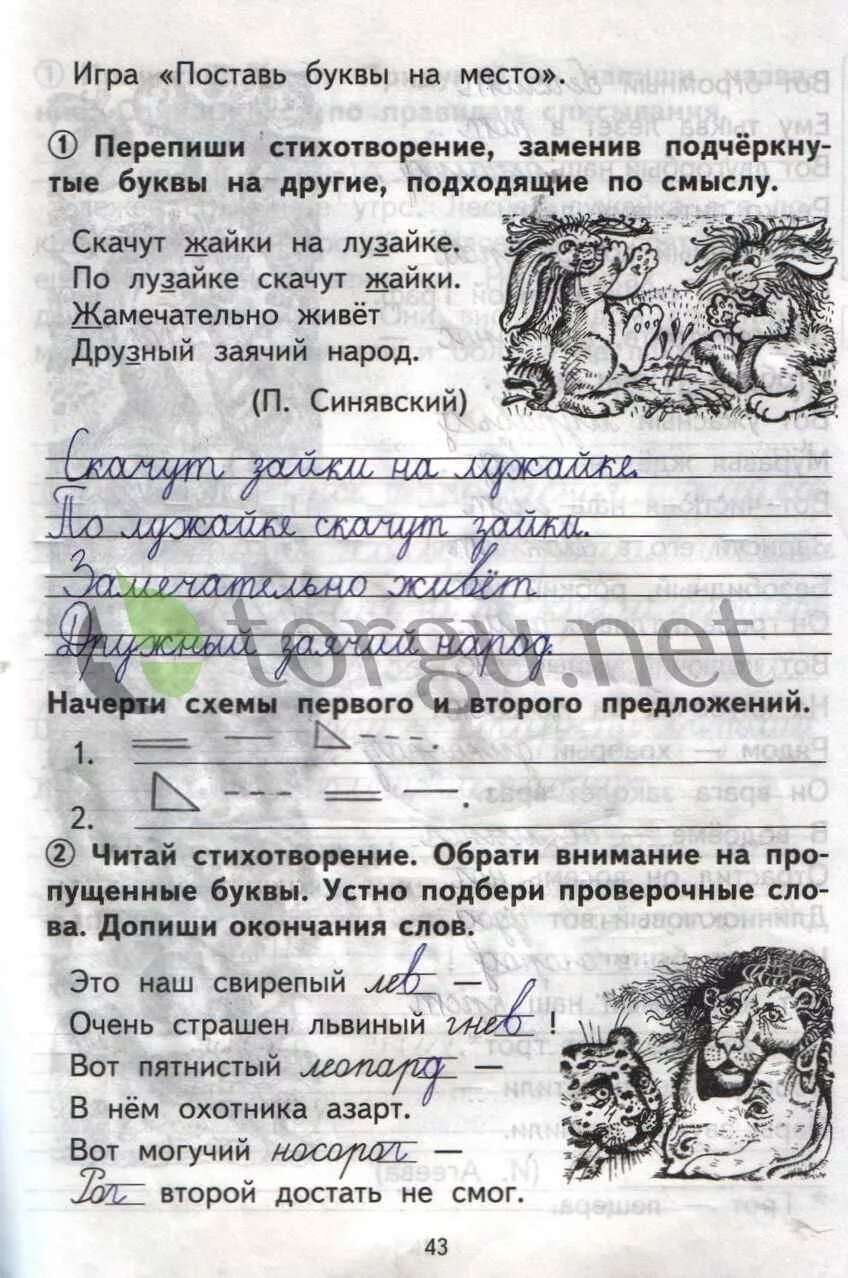 Игра «Поставь буквы на место».
① Перепиши стихотворение, заменив подчёркну-
тые буквы на другие, подходящие по смыслу.
Скачут жайки на лузайке.
По лузайке скачут жайки.
Жамечательно живёт
Друзный заячий народ.
(П. Синявский)
Скачут зайки на лужайке.
По лужайке скачут зайки.
Замечательно живёт
Дружный заячий народ.
torgu.net
Начерти схемы первого и второго предложений.
1.
2.
② Читай стихотворение. Обрати внимание на про-
пущенные буквы. Устно подбери проверочные сло-
ва. Допиши окончания слов.
Это наш свирепый лев —
Очень страшен львиный гнев !
Вот пятнистый леопард —
В нём охотника азарт.
Вот могучий носорог —
Рог второй достать не смог.
43